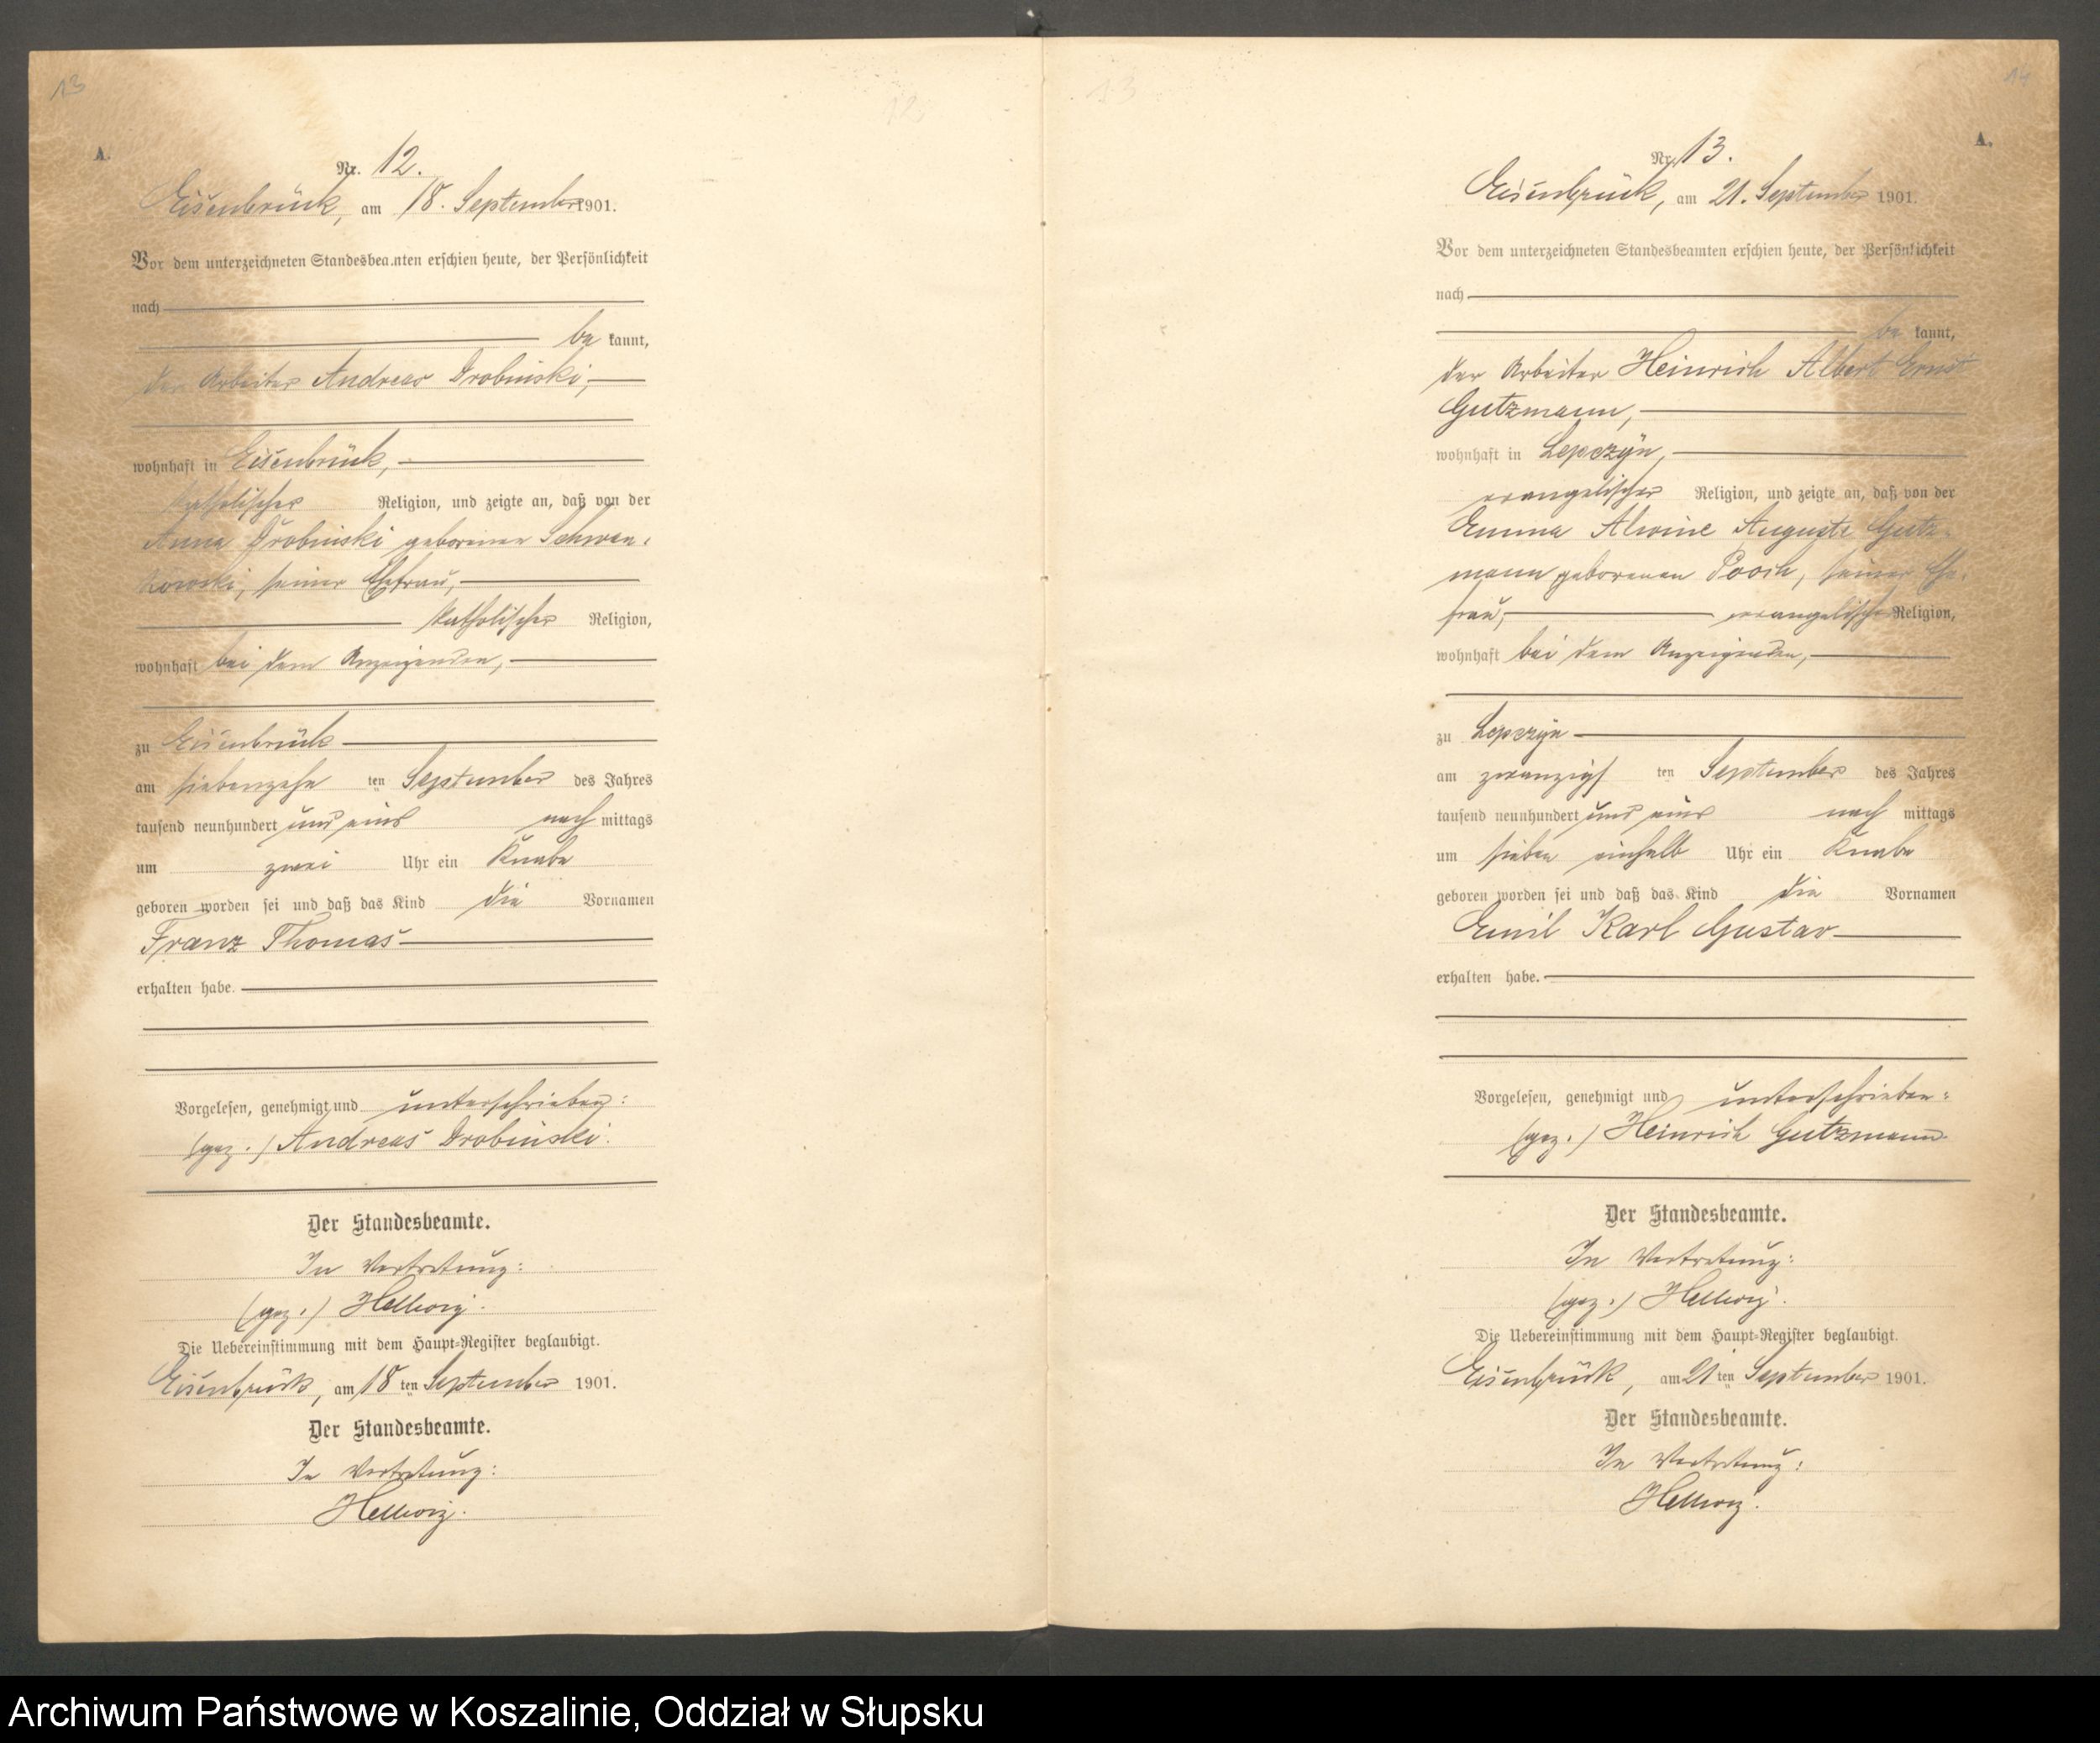 13
12
A.
Nr. 12.
Eisenbrück, am 18. September 1901.
Vor dem unterzeichneten Standesbeamten erschien heute, der Persönlichkeit
nach
be kannt,
der Arbeiter Andreas Drobinski,
wohnhaft in Eisenbrück,
katholischer Religion, und zeigte an, daß von der
Anna Drobinski geborenen Schwen-
kowski, seiner Ehefrau,
katholischer Religion,
wohnhaft bei dem Anzeigenden,
zu Eisenbrück
am siebenzehn ten September des Jahres
tausend neunhundert und eins nach mittags
um zwei Uhr ein Knabe
geboren worden sei und daß das Kind die Vornamen
Franz Thomas
erhalten habe.
Vorgelesen, genehmigt und unterschrieben:
(gez.) Andreas Drobinski.
Der Standesbeamte.
In Vertretung:
(gez.) Hellwig.
Die Uebereinstimmung mit dem Haupt-Register beglaubigt.
Eisenbrück, am 18 ten September 1901.
Der Standesbeamte.
In Vertretung:
Hellwig.
13
14
A.
Nr. 13.
Eisenbrück, am 21. September 1901.
Vor dem unterzeichneten Standesbeamten erschien heute, der Persönlichkeit
nach
be kannt,
der Arbeiter Heinrich Albert Ernst
Gutzmann,
wohnhaft in Lepczyn,
evangelischer Religion, und zeigte an, daß von der
Emma Alwine Auguste Gutz-
mann geborenen Pooch, seiner Ehe-
frau, evangelischer Religion,
wohnhaft bei dem Anzeigenden,
zu Lepczyn
am zwanzigs ten September des Jahres
tausend neunhundert und eins nach mittags
um sieben einhalb Uhr ein Knabe
geboren worden sei und daß das Kind die Vornamen
Emil Karl Gustav
erhalten habe.
Vorgelesen, genehmigt und unterschrieben:
(gez.) Heinrich Gutzmann.
Der Standesbeamte.
In Vertretung:
(gez.) Hellwig.
Die Uebereinstimmung mit dem Haupt-Register beglaubigt.
Eisenbrück, am 21 ten September 1901.
Der Standesbeamte.
In Vertretung:
Hellwig.
Archiwum Państwowe w Koszalinie, Oddział w Słupsku